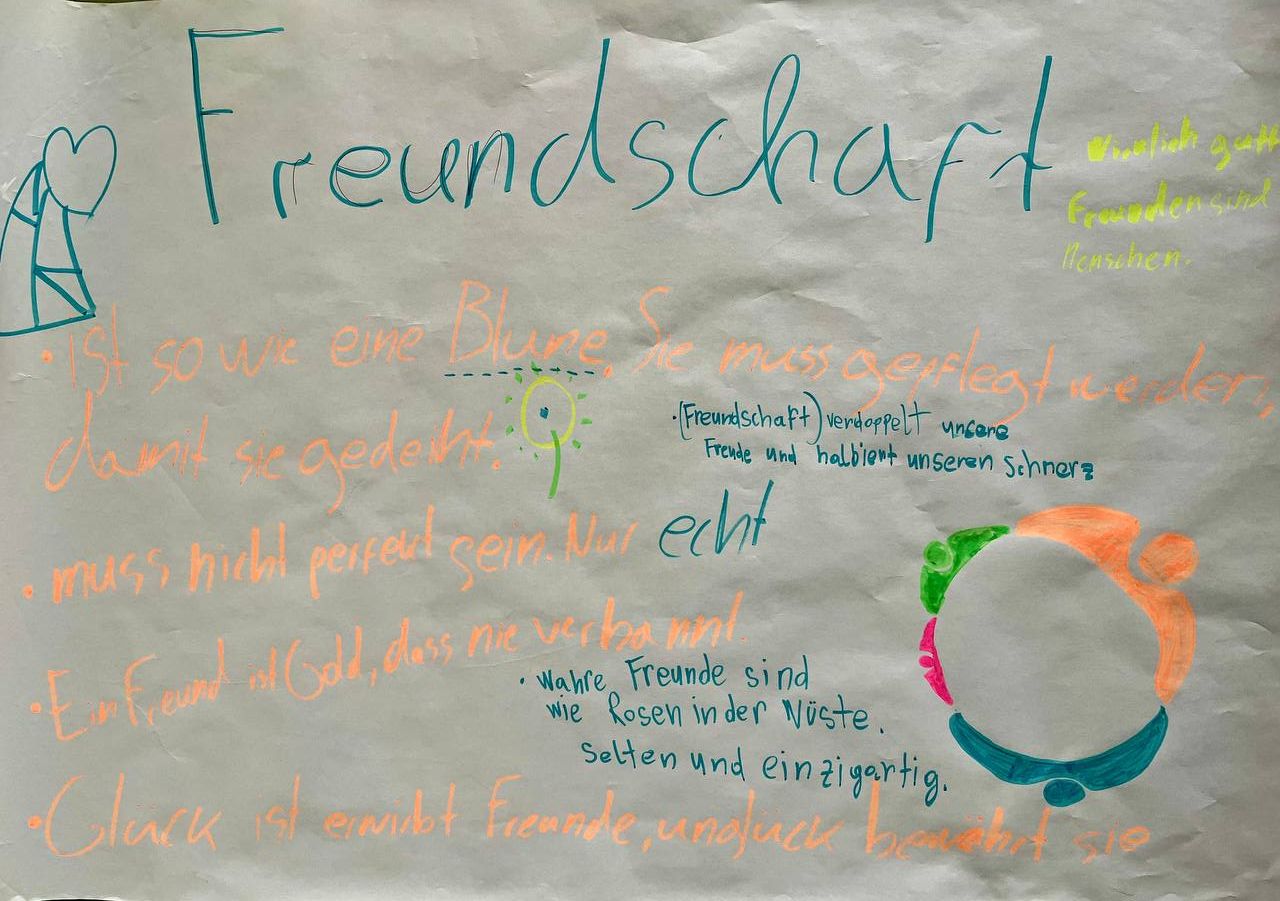 Freundschaft
Wirklich gute
Freunden sind
Menschen.
• ist so wie eine Blume, Sie muss gepflegt werden,
damit sie gedeiht.
• (Freundschaft) verdoppelt unsere
Freude und halbiert unseren Schmerz
• muss nicht perfekt sein. Nur echt
• Ein Freund ist Gold, dass nie verbannt.
• wahre Freunde sind
wie Rosen in der Wüste.
Selten und einzigartig.
• Glück ist erwirbt Freunde, unglück bewährt sie